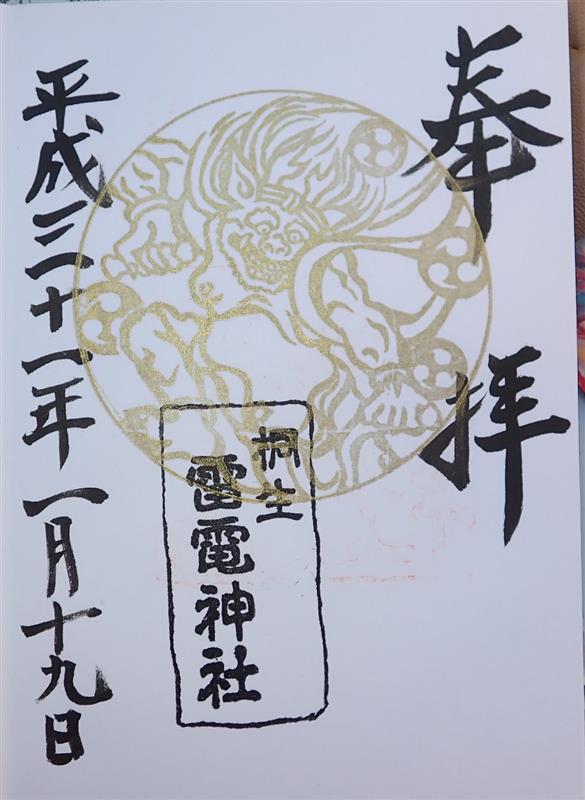 奉拝
桐生
雷電神社
平成三十一年一月十九日